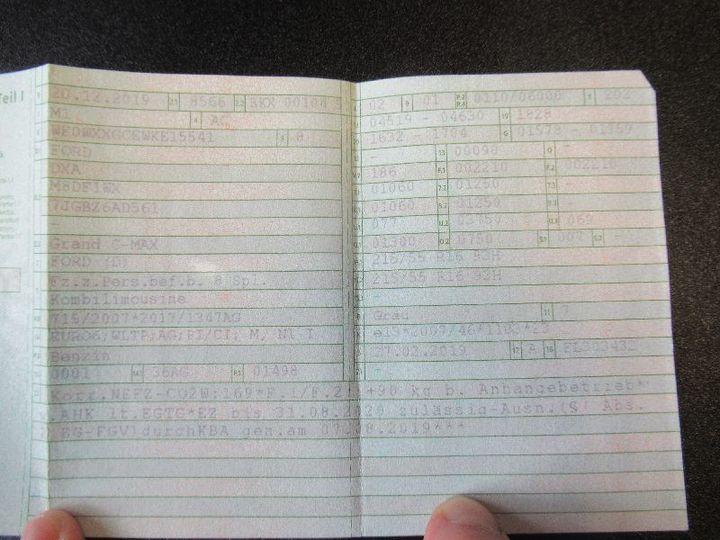 Teil I
20.12.2019 2.1 8566 2.2 BKX 00104
M1 4 AC
WF0WXXGCEWKE15541 3 8
FORD
DXA
M8DF1WX
7JGBZ6AD561
Grand C-MAX
FORD (D)
Fz.z.Pers.bef.b. 8 Spl.
Kombilimousine
715/2007*2017/1347AG
EURO6;WLTP;AG;PI/CI; M, N1-I
Benzin
0001 36AG 01498
02 9 01 P.2 P.4 0110/06000 202
04519 - 04630 19 1828
1632 - 1704 G 01578 - 01759
- 13 00090 Q -
186 F.1 002210 F.2 002210
01060 7.1 01250 -
01060 8.1 01250 -
077 U.2 03750 U.3 069
01300 O.2 0750 S.1 007 S.2 -
215/55 R16 93H
215/55 R16 93H
-
Grau 11 7
e13*2007/46*1103*
27.02.2019 17 A 16
-
Korr.NEFZ-CO2W:169*F.1/F.2:+90 kg b. Anhängebetrieb*
.AHK lt.EGTG*EZ bis 31.08.2020 zulässig-Ausn.(§ Abs.
EG-FGV)durchKBA gen.am 07.08.2019***